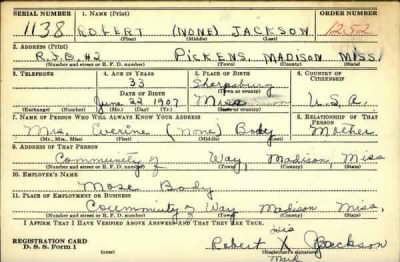 SERIAL NUMBER 1. NAME (Print) ORDER NUMBER
1138 ROBERT (NONE) JACKSON 1252
(First) (Middle) (Last)
2. ADDRESS (Print)
R.F.D. #2 PICKENS, MADISON MISS.
(Number and street or R. F. D. number) (Town) (County) (State)
3. TELEPHONE 4. AGE IN YEARS 5. PLACE OF BIRTH 6. COUNTRY OF CITIZENSHIP
33 Sharpsburg
DATE OF BIRTH (Town or county)
June 22 1907 Miss U.S.A.
(Exchange) (Number) (Mo.) (Day) (Yr.) (State or country)
7. NAME OF PERSON WHO WILL ALWAYS KNOW YOUR ADDRESS 8. RELATIONSHIP OF THAT PERSON
Mrs. Everline (None) Body Mother
(Mr., Mrs., Miss) (First) (Middle) (Last)
9. ADDRESS OF THAT PERSON
Community of Way, Madison, Miss
(Number and street or R. F. D. number) (Town) (County) (State)
10. EMPLOYER'S NAME
Mose Body
11. PLACE OF EMPLOYMENT OR BUSINESS
Community of Way Madison Miss,
(Number and street or R. F. D. number) (Town) (County) (State)
I AFFIRM THAT I HAVE VERIFIED ABOVE ANSWERS AND THAT THEY ARE TRUE.
his
REGISTRATION CARD Robert X Jackson
D. S. S. Form 1 (Registrant's signature)
Mark